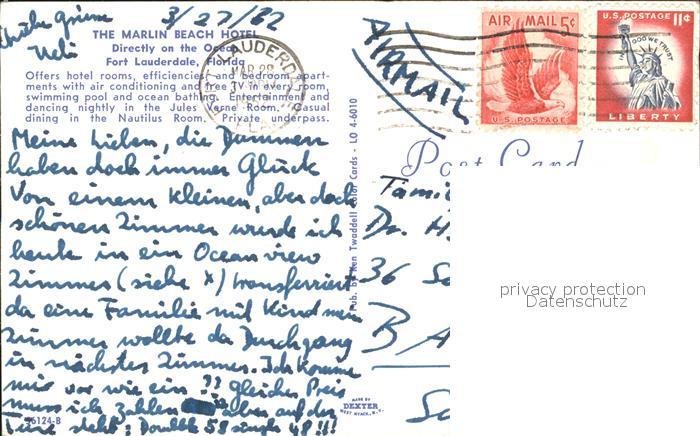 3/27/62
THE MARLIN BEACH HOTEL
Directly on the Ocean
Fort Lauderdale, Florida
Offers hotel rooms, efficiencies and bedroom apart-
ments with air conditioning and free TV in every room,
swimming pool and ocean bathing. Entertainment and
dancing nightly in the Jules Verne Room. Casual
dining in the Nautilus Room. Private underpass.
Meine Lieben, die Dummen
haben doch immer Glück
Von einem kleinen, aber doch
schönen Zimmer wurde ich
heute in ein Ocean view
Zimmer (siehe X) transferriert
da eine Familie mit Kind mein
Zimmer wollte da Durchgang
in nächstes Zimmer. Ich komme
mir vor wie ein ?? gleichen Preis
muss ich zahlen aber auf der
Türe steht: Double 58 single 48 !!!
76124-B
Pub. by Ken Twaddell Color Cards - LO 4-6010
MADE BY
DEXTER
WEST NYACK, N.Y.
AIRMAIL
AIR MAIL 5¢
U.S. POSTAGE
U.S. POSTAGE 11¢
IN GOD WE TRUST
LIBERTY
Post Card
Dr. H
36
privacy protection
Datenschutz